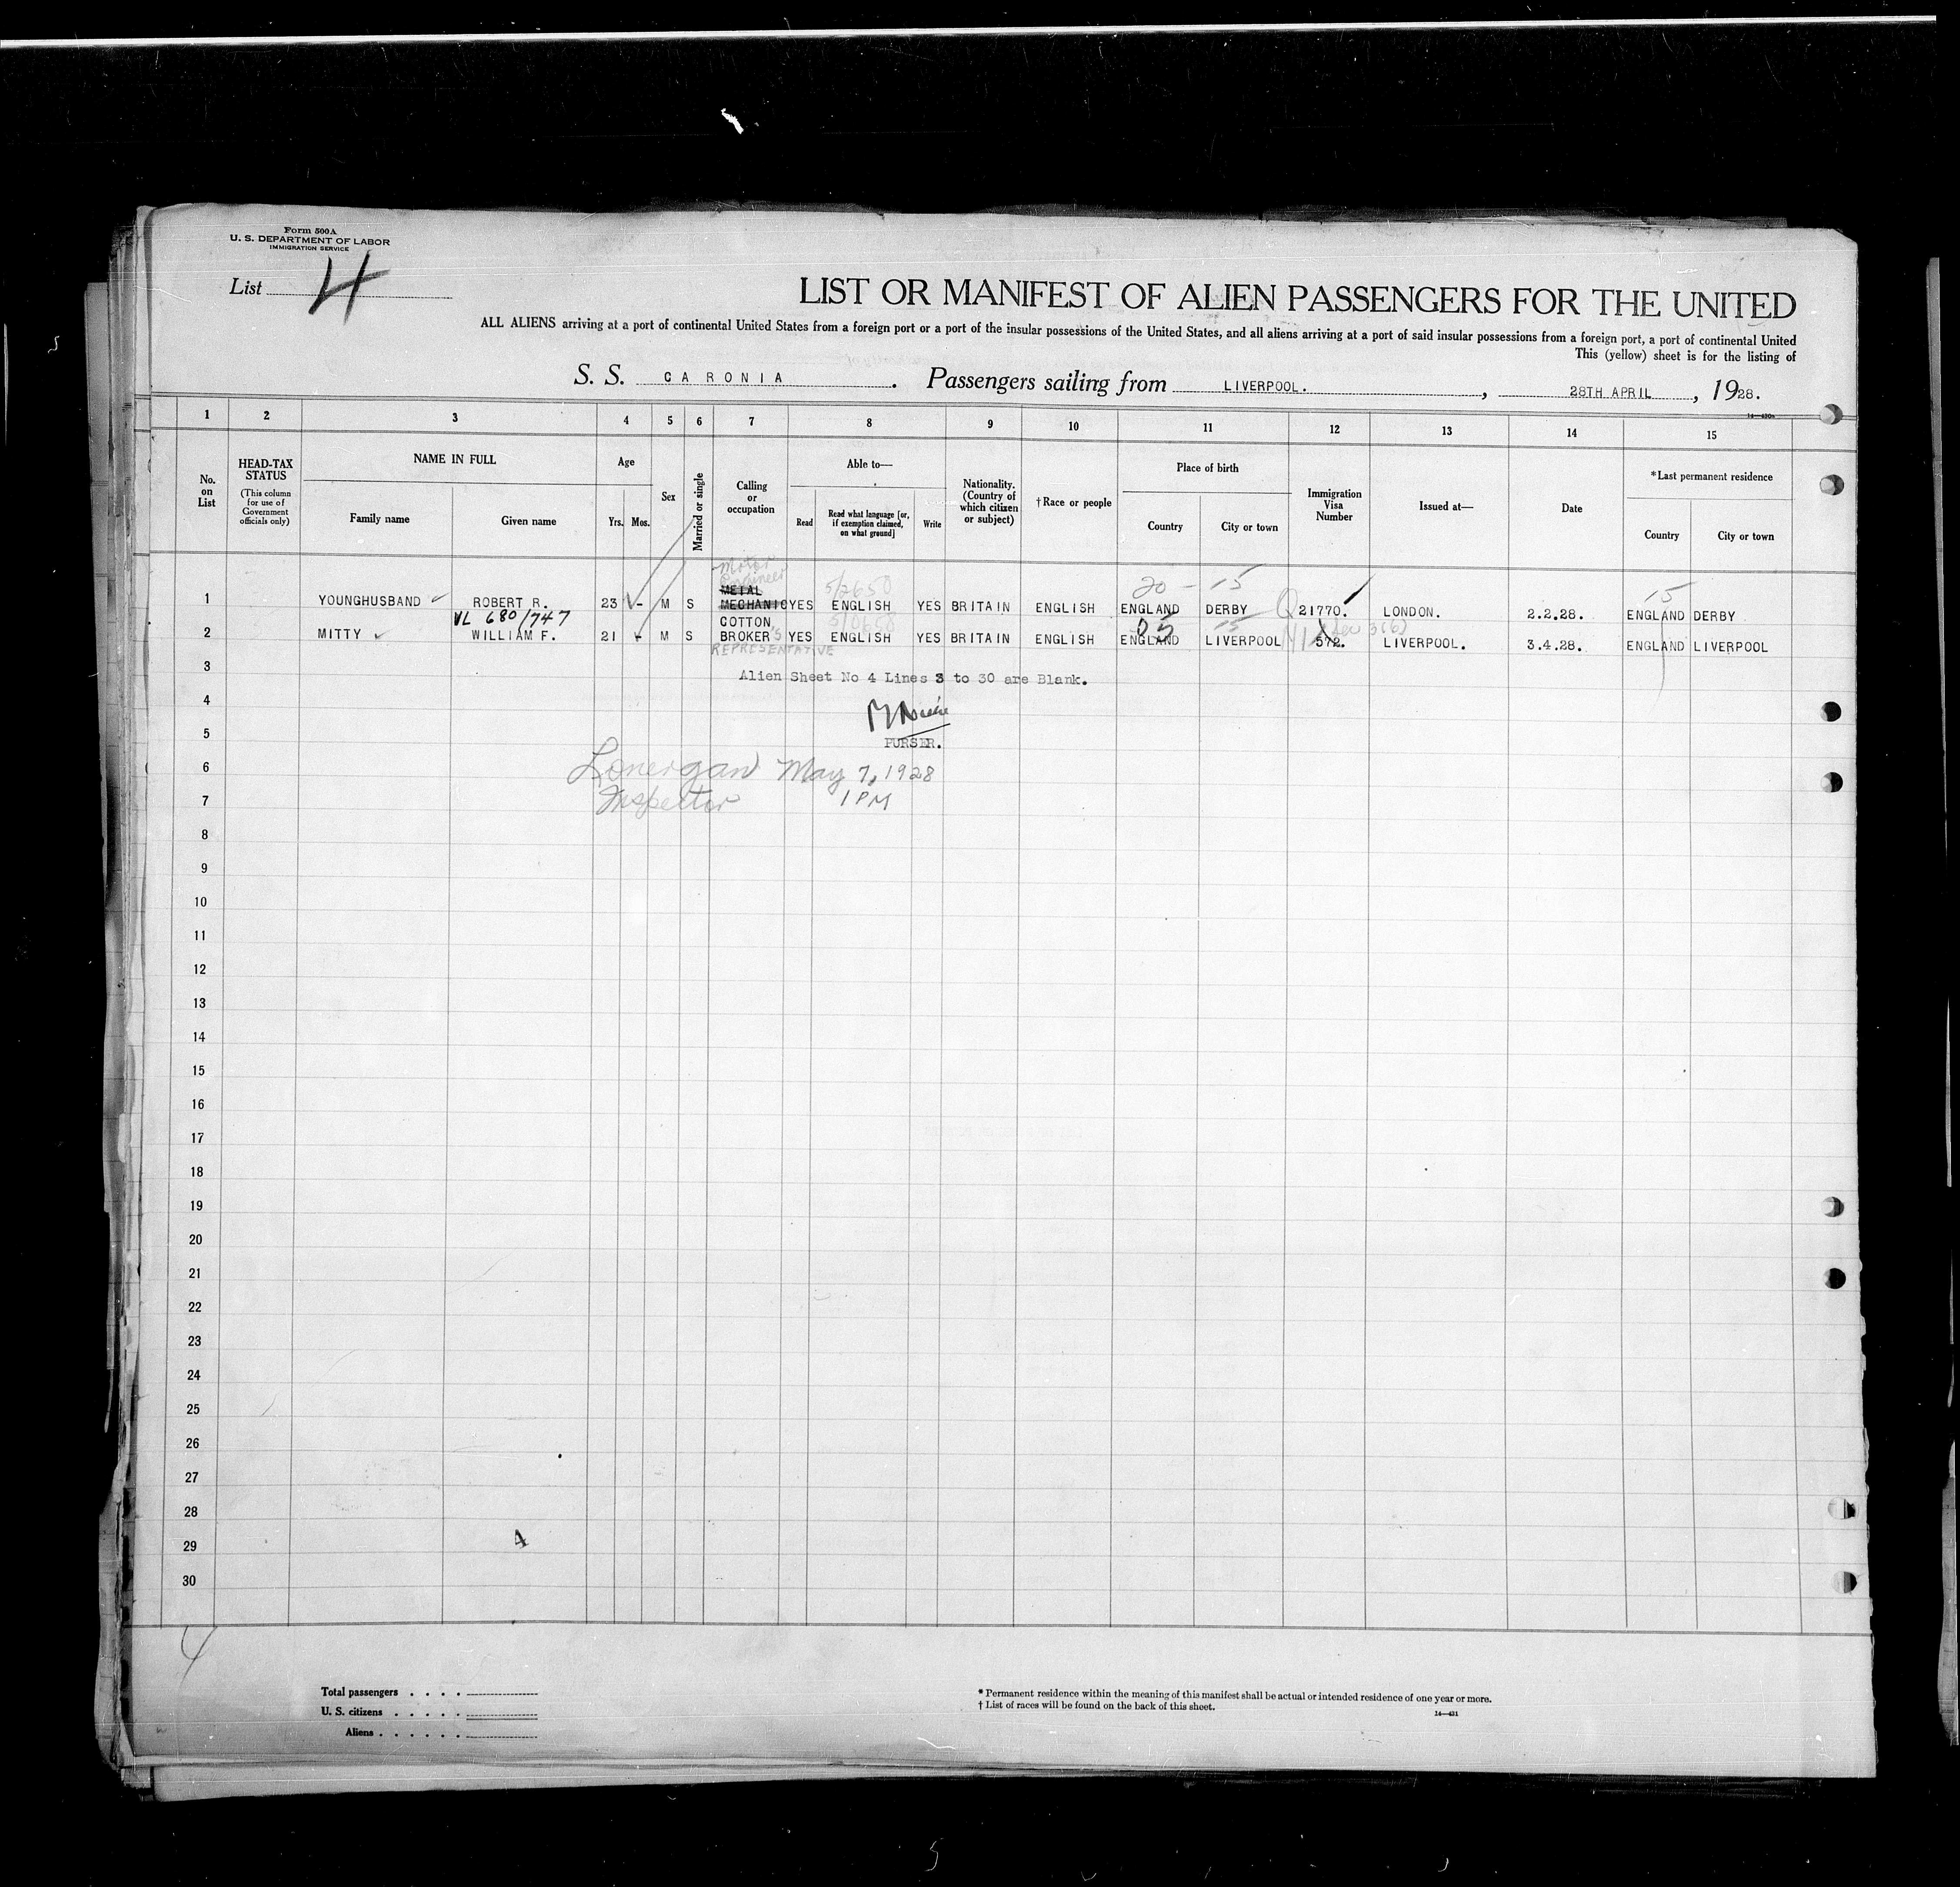 Form 500A
U. S. DEPARTMENT OF LABOR
IMMIGRATION SERVICE
List 4
LIST OR MANIFEST OF ALIEN PASSENGERS FOR THE UNITED
ALL ALIENS arriving at a port of continental United States from a foreign port or a port of the insular possessions of the United States, and all aliens arriving at a port of said insular possessions from a foreign port, a port of continental United
This (yellow) sheet is for the listing of
S. S. CARONIA. Passengers sailing from LIVERPOOL., 28TH APRIL, 1928.
1 2 3 4 5 6 7 8 9 10 11 12 13 14 15
No. on List
HEAD-TAX STATUS
(This column for use of Government officials only)
NAME IN FULL
Family name
Given name
Age
Yrs. Mos.
Sex
Married or single
Calling or occupation
Able to—
Read
Read what language [or, if exemption claimed, on what ground]
Write
Nationality. (Country of which citizen or subject)
†Race or people
Place of birth
Country
City or town
Immigration Visa Number
Issued at—
Date
*Last permanent residence
Country
City or town
Motor
Engineer 5/2650 20 - 15 15
METAL
1 YOUNGHUSBAND ROBERT R. 23 - M S MECHANIC YES ENGLISH YES BRITAIN ENGLISH ENGLAND DERBY Q 21770. LONDON. 2.2.28. ENGLAND DERBY
VL 680/747 COTTON 05 15
2 MITTY WILLIAM F. 21 - M S BROKER'S YES ENGLISH YES BRITAIN ENGLISH ENGLAND LIVERPOOL 572. LIVERPOOL. 3.4.28. ENGLAND LIVERPOOL
REPRESENTATIVE
3 Alien Sheet No 4 Lines 3 to 30 are Blank.
4
5 PURSER.
6 Lonergan May 7, 1928
7 Inspector 1 PM
8
9
10
11
12
13
14
15
16
17
18
19
20
21
22
23
24
25
26
27
28
29 4
30
4
Total passengers . . . .
U. S. citizens . . . . .
Aliens . . . . . .
* Permanent residence within the meaning of this manifest shall be actual or intended residence of one year or more.
† List of races will be found on the back of this sheet.
14—431